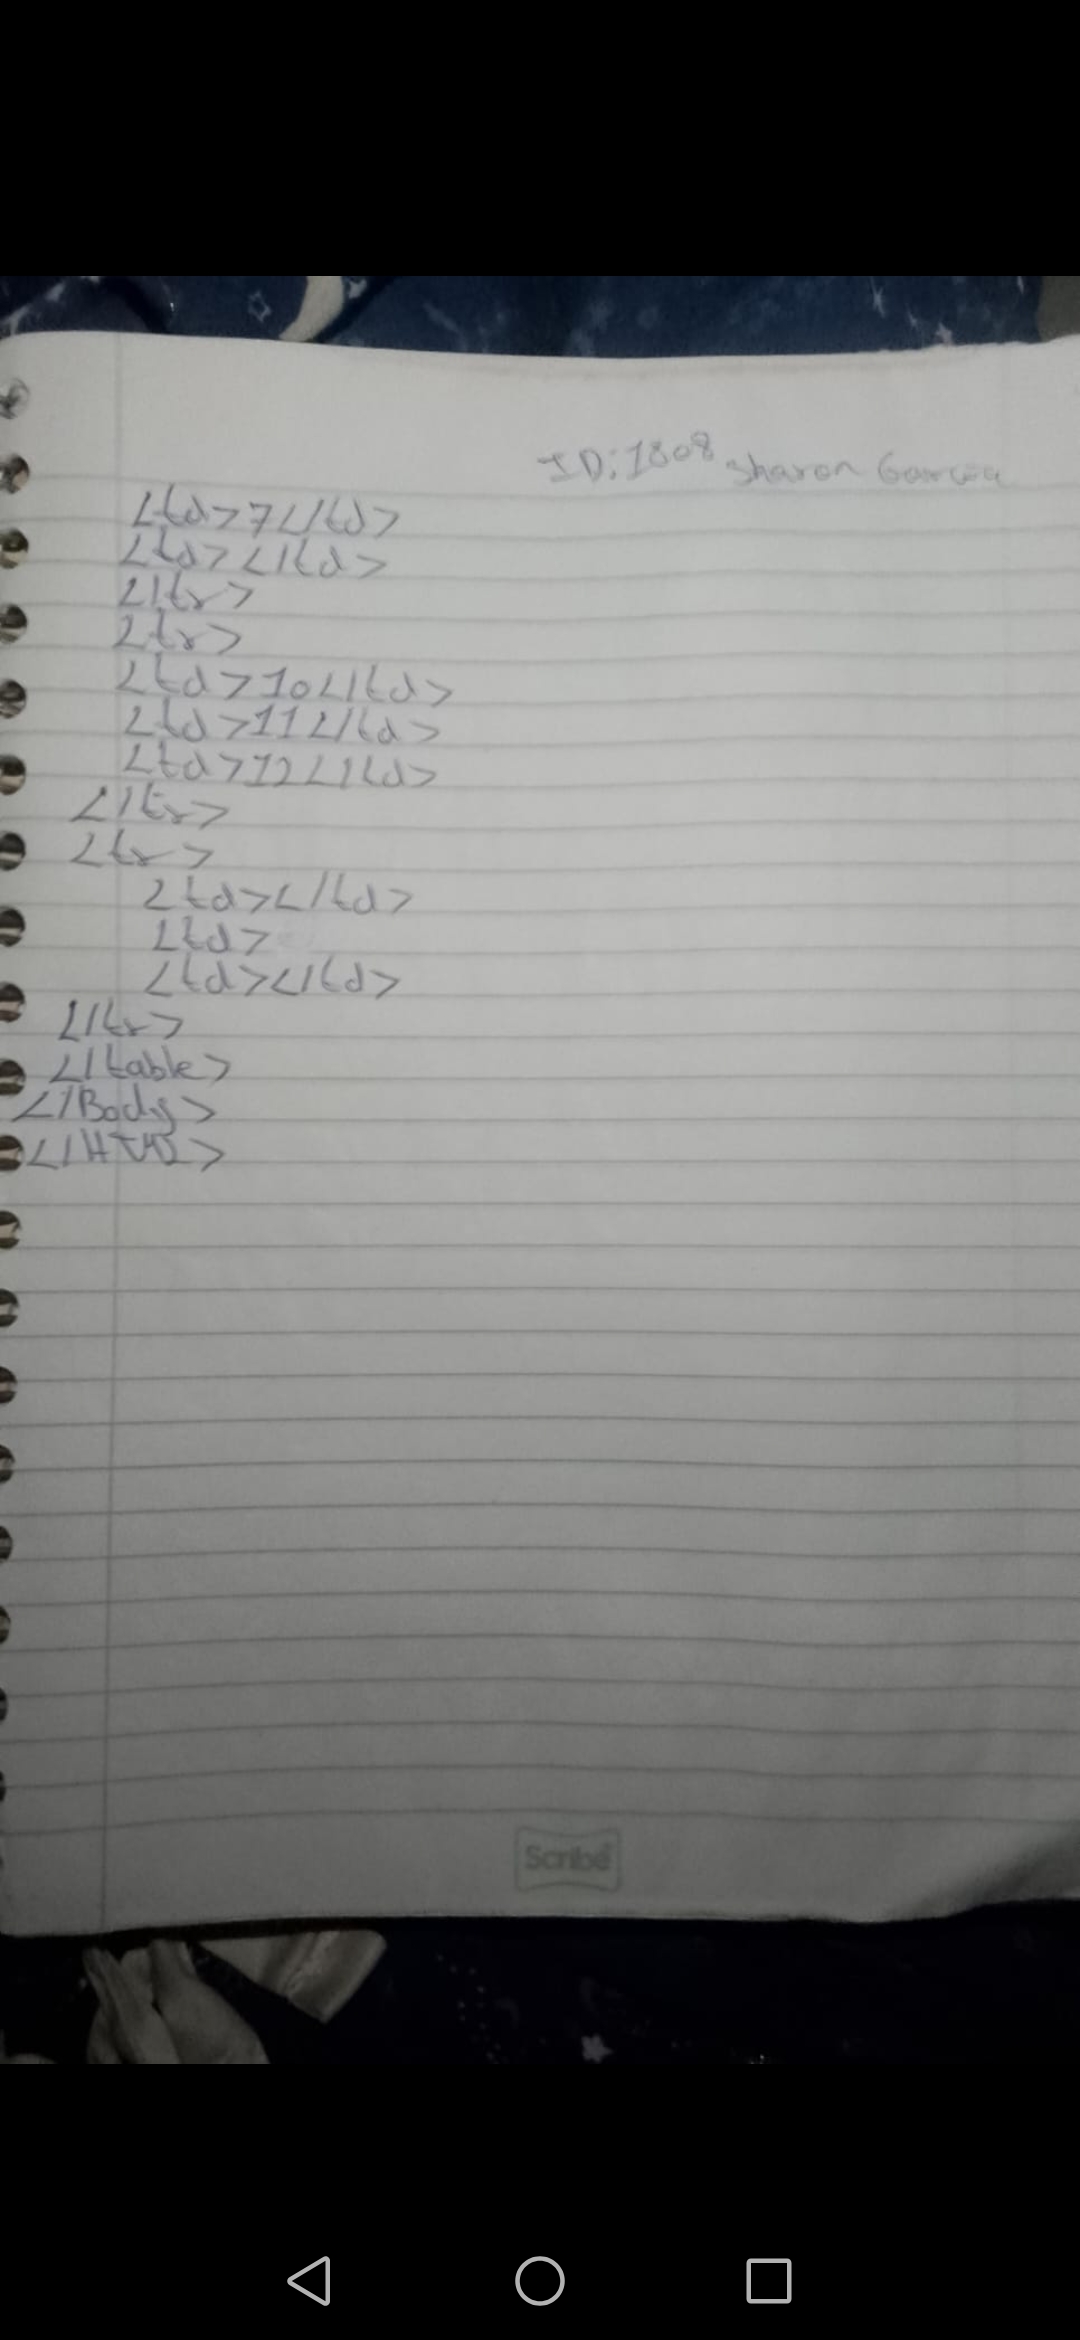 ID:1808 Sharon Garcia
<td>7</td>
<td></td>
</tr>
<tr>
<td>10</td>
<td>11</td>
<td>12</td>
</tr>
<tr>
<td></td>
<td>
<td></td>
</tr>
</table>
</Body>
</HTML>
Scribe